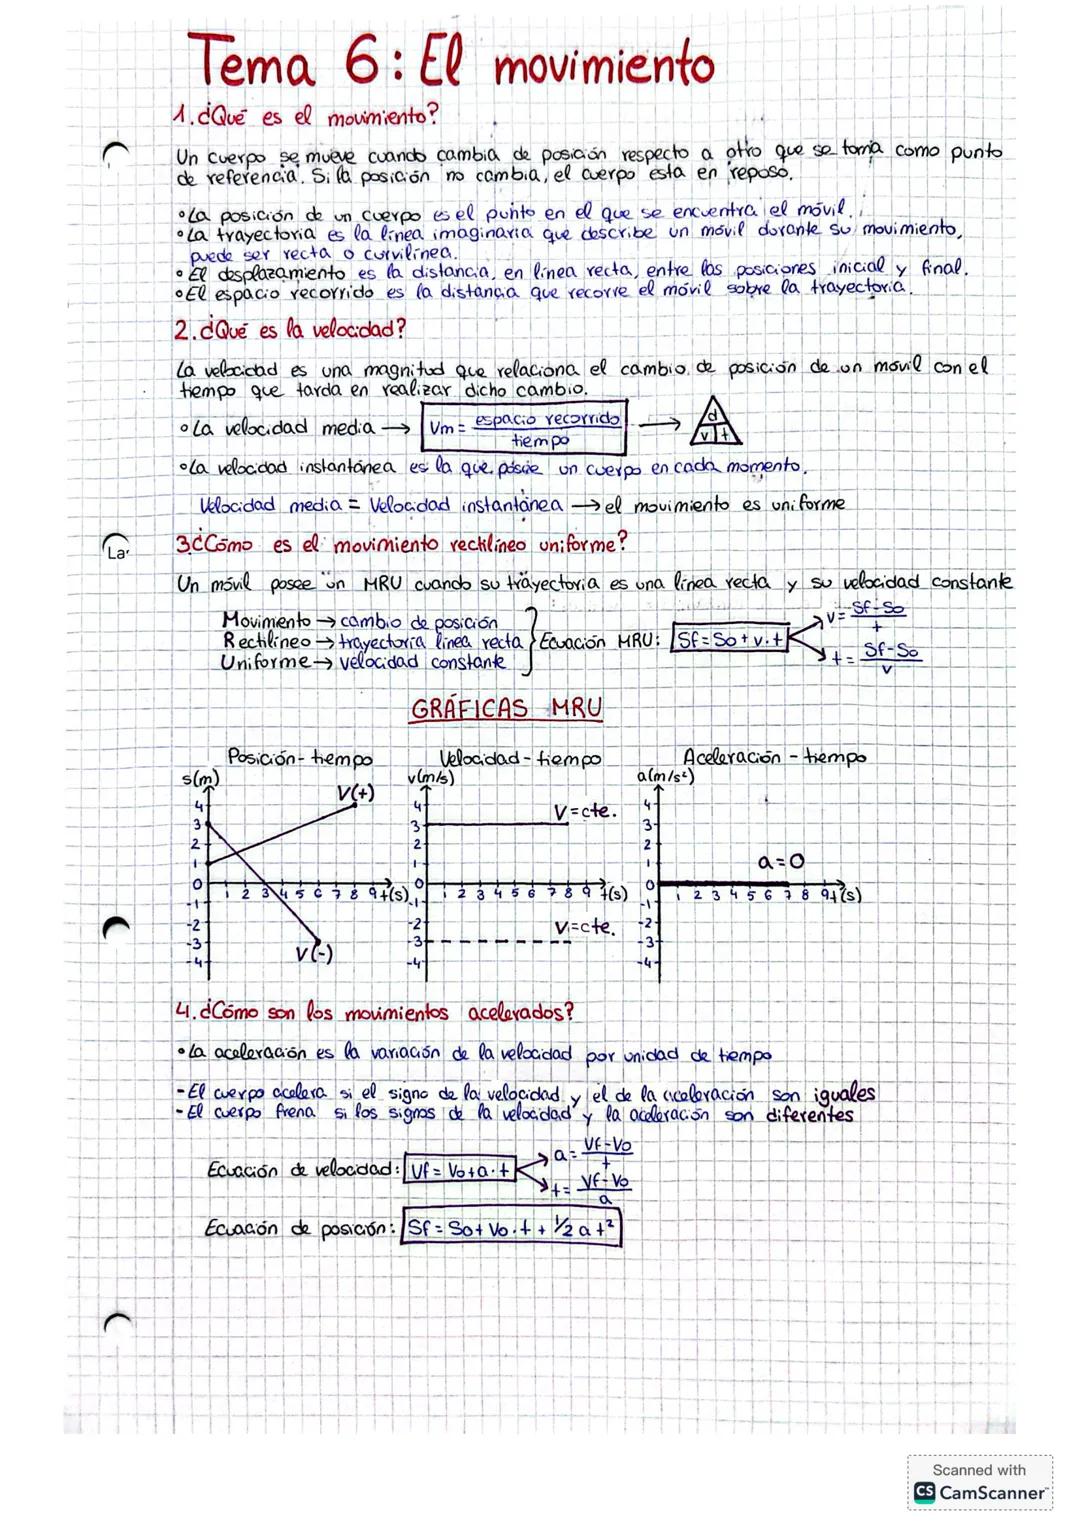 Tema 6: El movimiento
1. ¿Qué es el movimiento?
Un cuerpo se mueve cuando cambia de posición respecto a otro que se toma como punto
de referencia. Si la posición no cambia, el cuerpo esta en reposo.
•La posición de un cuerpo es el punto en el que se encuentra el móvil.
•La trayectoria es la línea imaginaria que describe un móvil durante su movimiento,
puede ser recta o curvilínea.
•El desplazamiento es la distancia, en línea recta, entre las posiciones inicial y final.
•El espacio recorrido es la distancia que recorre el móvil sobre la trayectoria.
2. ¿Qué es la velocidad?
La velocidad es una magnitud que relaciona el cambio de posición de un móvil con el
tiempo que tarda en realizar dicho cambio.
•La velocidad media → Vm = espacio recorrido / tiempo → d v t
•La velocidad instantánea es la que posee un cuerpo en cada momento.
Velocidad media = Velocidad instantánea → el movimiento es uniforme
La
3. ¿Cómo es el movimiento rectilíneo uniforme?
Un móvil posee un MRU cuando su trayectoria es una línea recta y su velocidad constante
Movimiento → cambio de posición
Rectilíneo → trayectoria línea recta
Uniforme → velocidad constante
Ecuación MRU: Sf = So + v.t
v = Sf-So / t
t = Sf-So / v
GRÁFICAS MRU
Posición - tiempo
Velocidad - tiempo
Aceleración - tiempo
s(m)
V(+)
4
3
2
1
0
-1
-2
-3
-4
1 2 3 4 5 6 7 8 9 t(s)
V(-)
v(m/s)
4
3
2
1
0
-1
-2
-3
-4
V=cte.
1 2 3 4 5 6 7 8 9 t(s)
V=cte.
a(m/s²)
4
3
2
1
0
-1
-2
-3
-4
a=0
1 2 3 4 5 6 7 8 9 t(s)
4. ¿Cómo son los movimientos acelerados?
•La aceleración es la variación de la velocidad por unidad de tiempo
-El cuerpo acelera si el signo de la velocidad y el de la aceleración son iguales
-El cuerpo frena si los signos de la velocidad y la aceleración son diferentes
Ecuación de velocidad: Vf = Vo+a.t
a = Vf-Vo / t
t = Vf-Vo / a
Ecuación de posición: Sf = So + Vo.t + 1/2 a t²
Scanned with
CS CamScanner